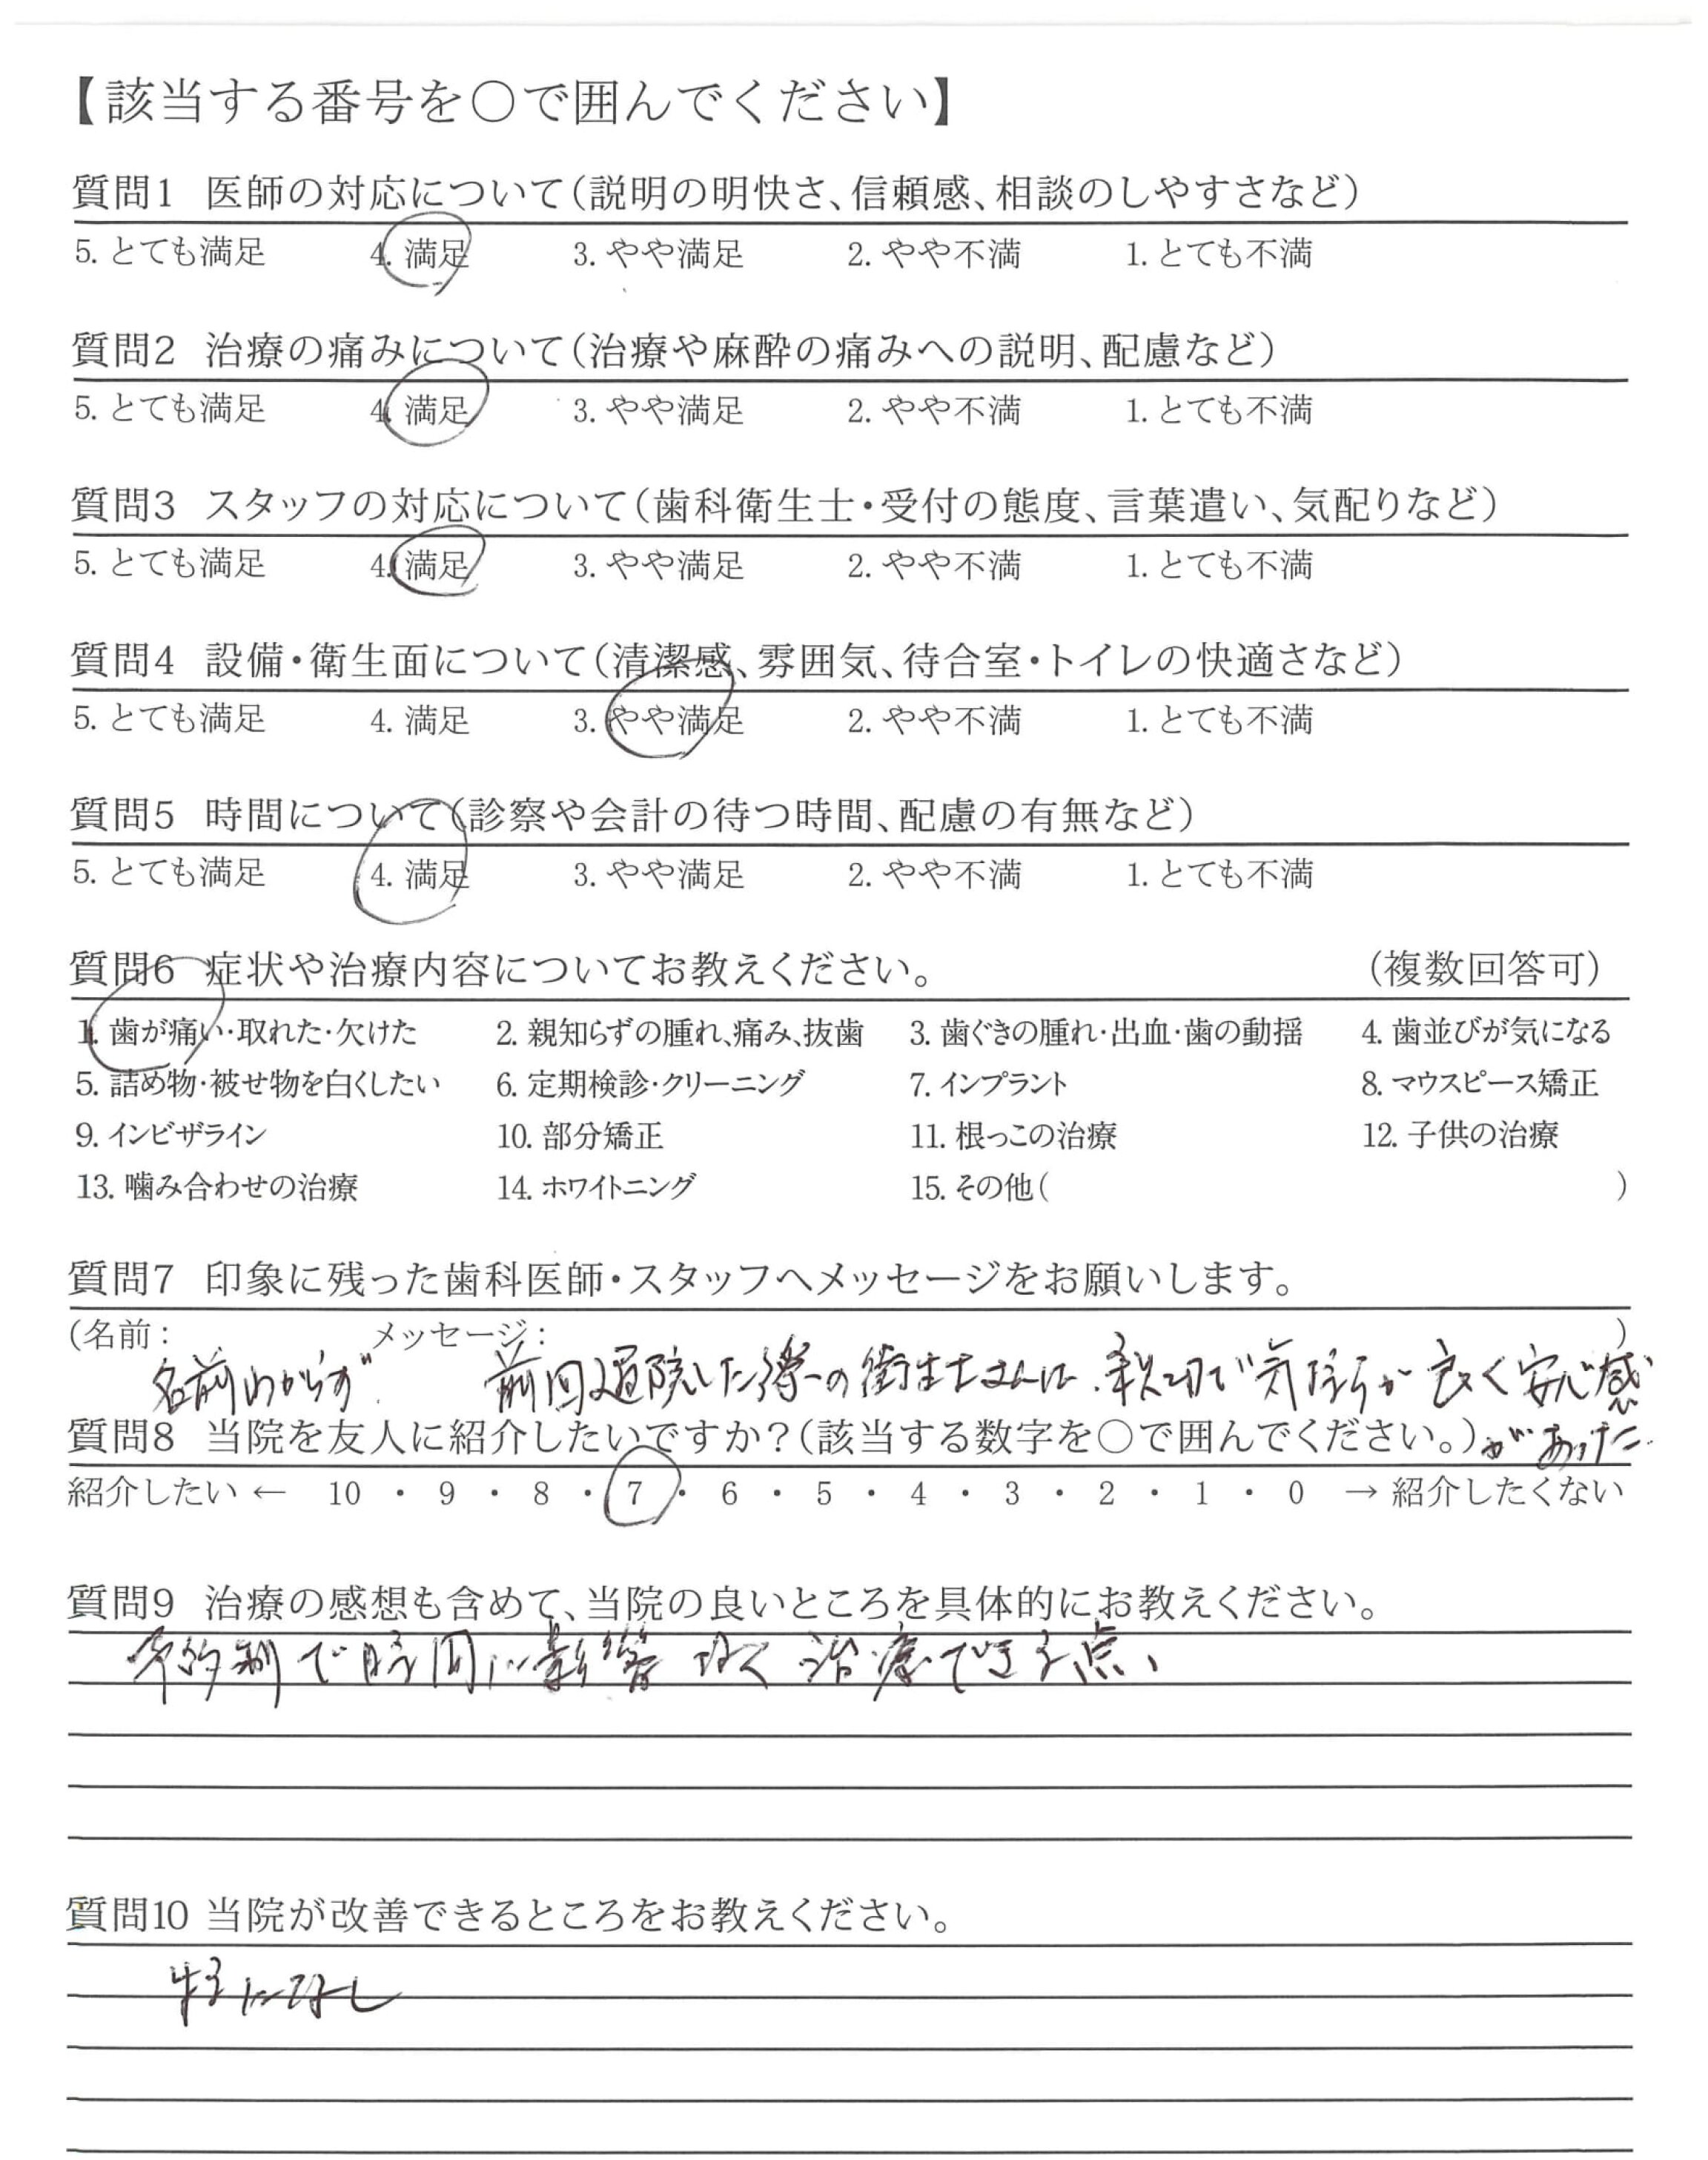 【該当する番号を○で囲んでください】
質問1 医師の対応について(説明の明快さ、信頼感、相談のしやすさなど)
5. とても満足 4. 満足 3. やや満足 2. やや不満 1. とても不満
質問2 治療の痛みについて(治療や麻酔の痛みへの説明、配慮など)
5. とても満足 4. 満足 3. やや満足 2. やや不満 1. とても不満
質問3 スタッフの対応について(歯科衛生士・受付の態度、言葉遣い、気配りなど)
5. とても満足 4. 満足 3. やや満足 2. やや不満 1. とても不満
質問4 設備・衛生面について(清潔感、雰囲気、待合室・トイレの快適さなど)
5. とても満足 4. 満足 3. やや満足 2. やや不満 1. とても不満
質問5 時間について(診察や会計の待つ時間、配慮の有無など)
5. とても満足 4. 満足 3. やや満足 2. やや不満 1. とても不満
質問6 症状や治療内容についてお教えください。 (複数回答可)
1. 歯が痛い・取れた・欠けた 2. 親知らずの腫れ、痛み、抜歯 3. 歯ぐきの腫れ・出血・歯の動揺 4. 歯並びが気になる
5. 詰め物・被せ物を白くしたい 6. 定期検診・クリーニング 7. インプラント 8. マウスピース矯正
9. インビザライン 10. 部分矯正 11. 根っこの治療 12. 子供の治療
13. 噛み合わせの治療 14. ホワイトニング 15. その他( )
質問7 印象に残った歯科医師・スタッフへメッセージをお願いします。
(名前: メッセージ: )
名前わからず 前回通院した際の衛生士さんは、親切で気持ちが良く安心感
質問8 当院を友人に紹介したいですか?(該当する数字を○で囲んでください。) があった
紹介したい ← 10 ・ 9 ・ 8 ・ 7 ・ 6 ・ 5 ・ 4 ・ 3 ・ 2 ・ 1 ・ 0 → 紹介したくない
質問9 治療の感想も含めて、当院の良いところを具体的にお教えください。
予約制で時間に影響なく治療できる点、
質問10 当院が改善できるところをお教えください。
特になし